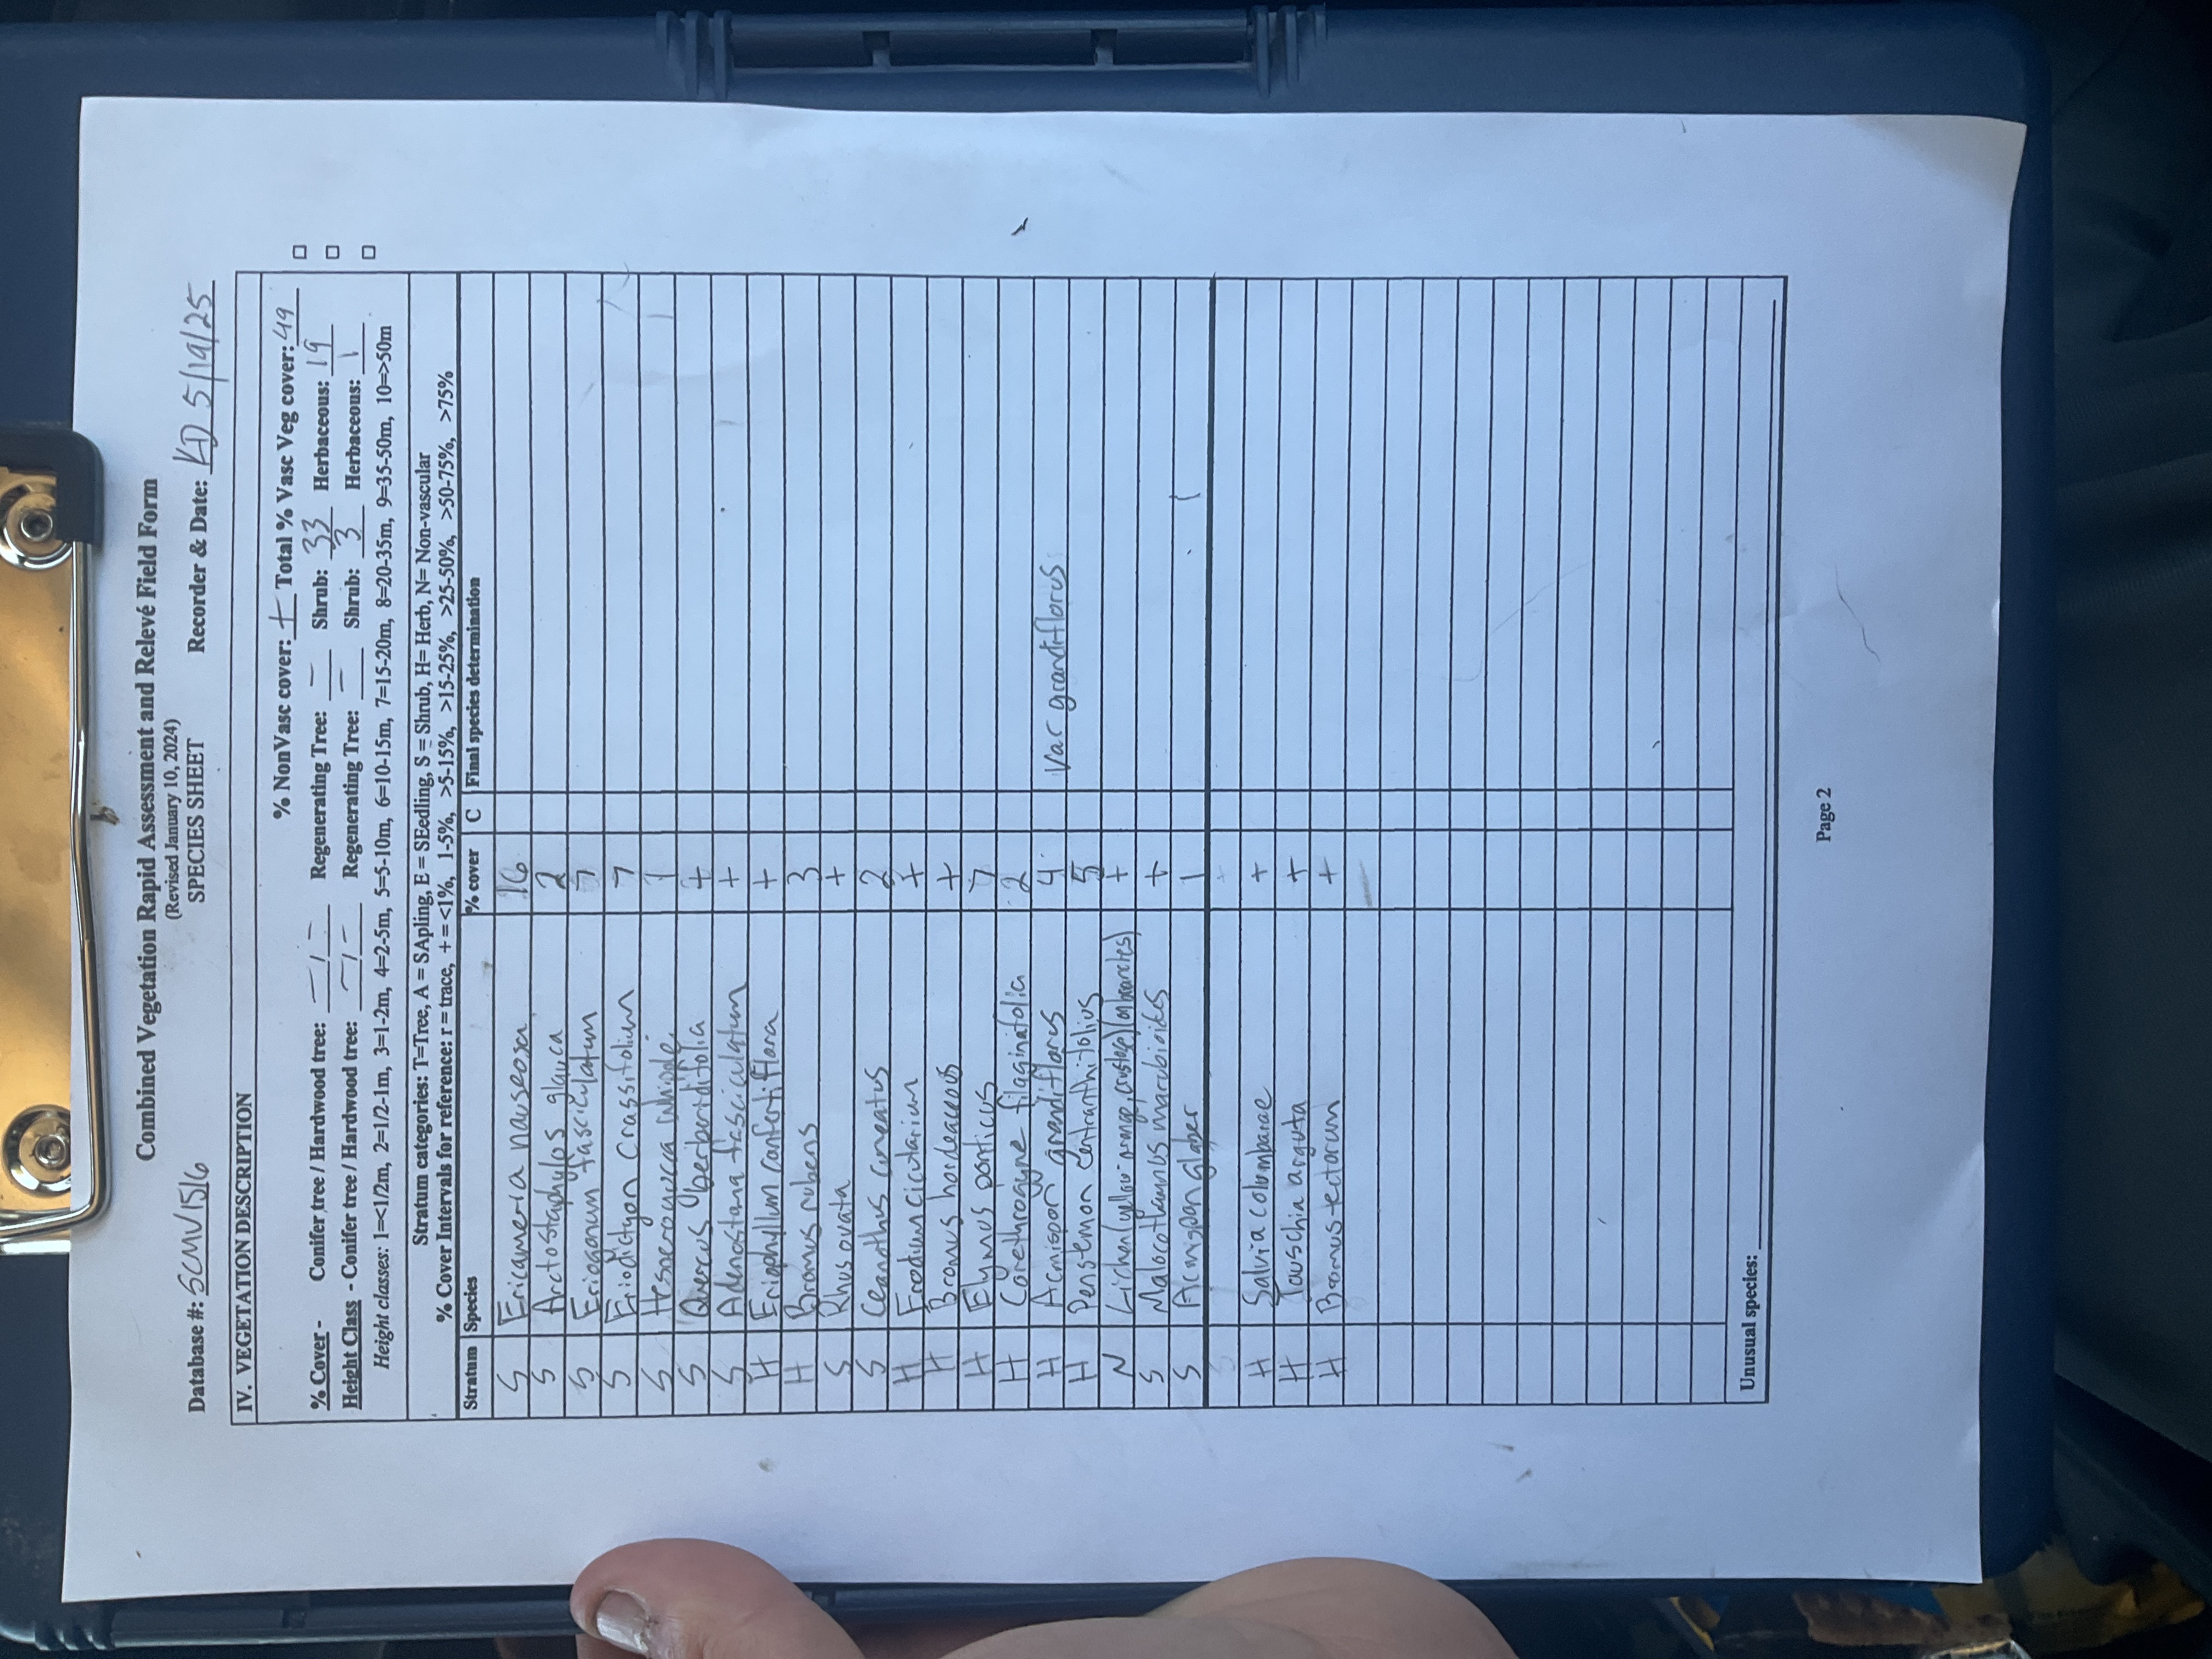 Combined Vegetation Rapid Assessment and Relevé Field Form
(Revised January 10, 2024)
SPECIES SHEET
Database #: SCMV1516 Recorder & Date: KD 5/19/25
IV. VEGETATION DESCRIPTION
% NonVasc cover: + Total % Vasc Veg cover: 49
% Cover - Conifer tree / Hardwood tree: - / - Regenerating Tree: - Shrub: 33 Herbaceous: 19
Height Class - Conifer tree / Hardwood tree: - / - Regenerating Tree: - Shrub: 3 Herbaceous: 1
Height classes: 1=<1/2m, 2=1/2-1m, 3=1-2m, 4=2-5m, 5=5-10m, 6=10-15m, 7=15-20m, 8=20-35m, 9=35-50m, 10=>50m
Stratum categories: T=Tree, A = SApling, E = SEedling, S = Shrub, H= Herb, N= Non-vascular
% Cover Intervals for reference: r = trace, + = <1%, 1-5%, >5-15%, >15-25%, >25-50%, >50-75%, >75%
Stratum Species % cover C Final species determination
S Ericameria nauseosa 16
S Arctostaphylos glauca 2
S Eriogonum fasciculatum 7
S Eriodictyon crassifolium 7
S Hesperoyucca whipplei 1
S Quercus berberidifolia +
S Adenostama fasciculatum +
H Eriophyllum confertiflora +
H Bromus rubens 3
S Rhus ovata +
S Ceanothus cuneatus 2
H Erodium cicutarium +
H Bromus hordeaceous +
H Elymus ponticus 7
H Corethrogyne filaginifolia 2
H Acmispon grandiflorus 4 var grandiflorus
H Penstemon centranthifolius 5
N Lichen (yellow orange, crustose) (on branches) +
S Malacothamnus marubioides +
S Acmispon glaber 1
H Salvia columbarae +
H Tauschia arguta +
H Bromus tectorum +
Unusual species:
Page 2